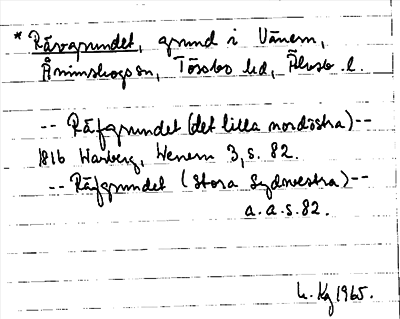 * Rävgrundet, grund i Vänern,
Ånimskogs sn, Tössbo hd, Älvsb l.
-- Räfgrundet (det lilla nordöstra) --
1816 Warberg, Wenern 3, s. 82.
-- Räfgrundet (Stora Sydvestra) --
a.a.s. 82.
1965.